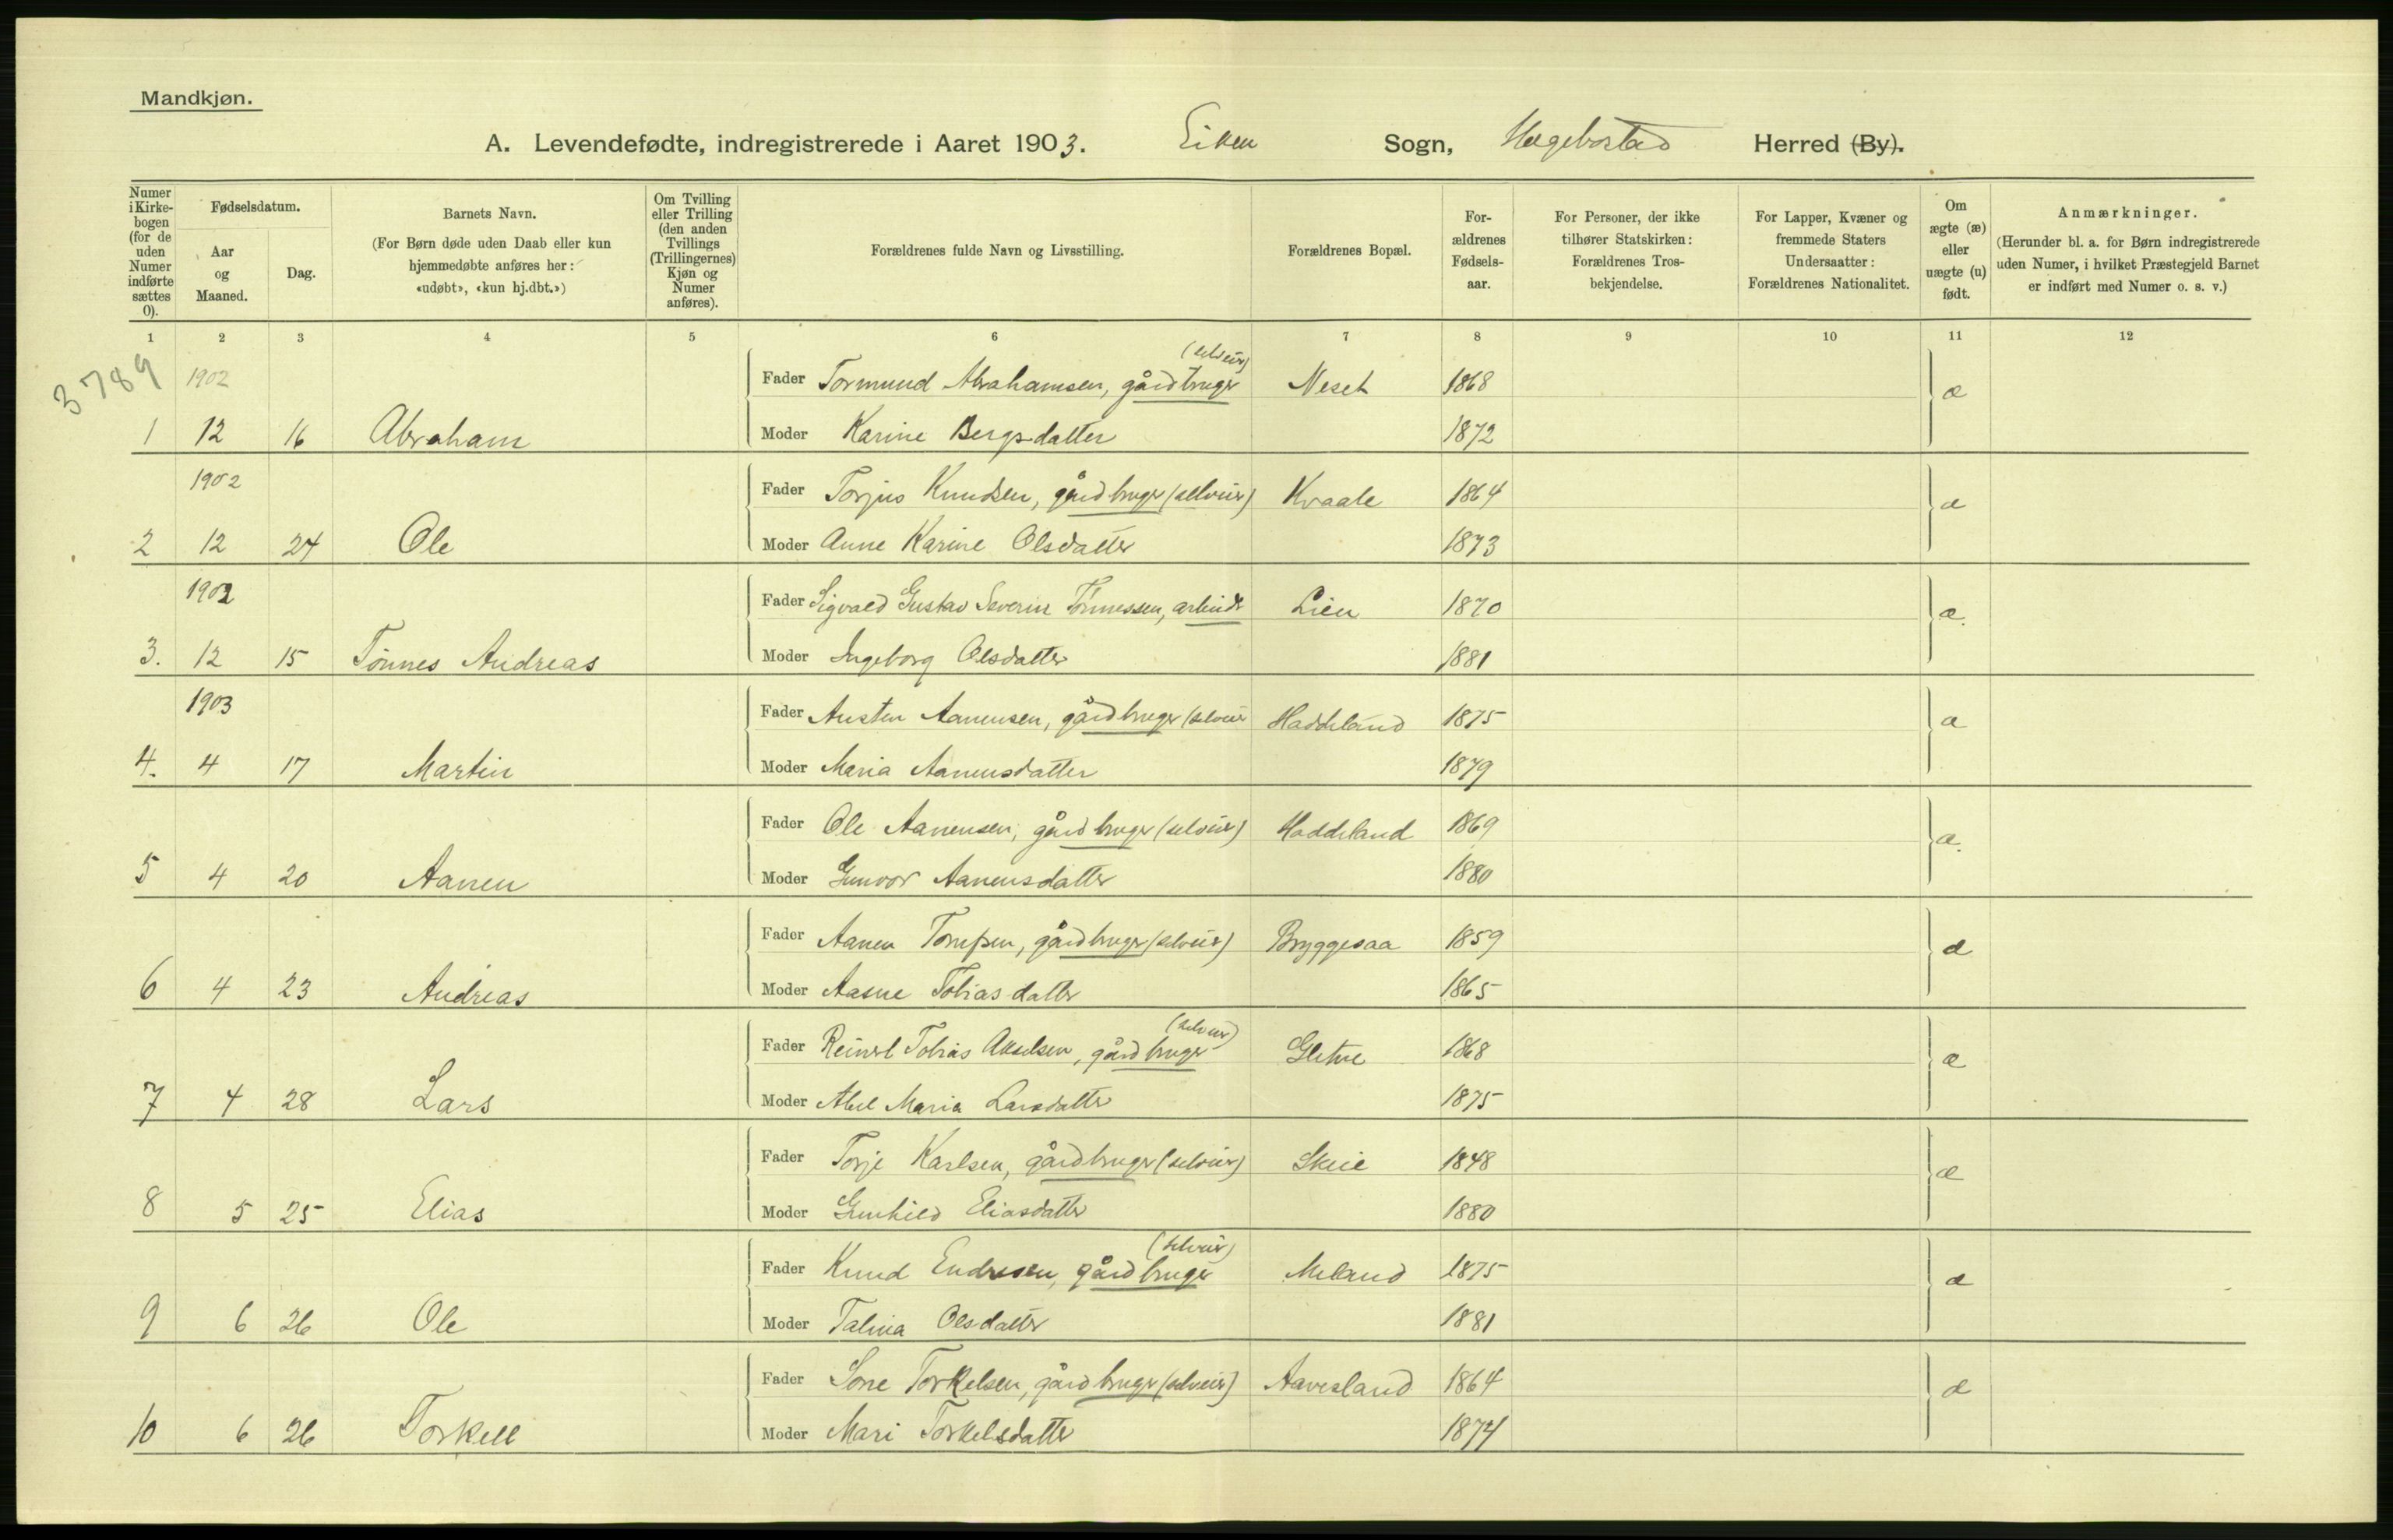 Mandkjøn.
A. Levendefødte, indregistrerede i Aaret 1903. Eiken Sogn, Hægebostad Herred (By).
Numer i Kirke-bogen (for de uden Numer indførte sættes 0).
Fødselsdatum.
Aar og Maaned.
Dag.
Barnets Navn.
(For Børn døde uden Daab eller kun hjemmedøbte anføres her: «udøbt», «kun hj.dbt.»)
Om Tvilling eller Trilling (den anden Tvillings (Trillingernes) Kjøn og Numer anføres).
Forældrenes fulde Navn og Livsstilling.
Forældrenes Bopæl.
For-ældrenes Fødsels-aar.
For Personer, der ikke tilhører Statskirken: Forældrenes Tros-bekjendelse.
For Lapper, Kvæner og fremmede Staters Undersaatter: Forældrenes Nationalitet.
Om ægte (æ) eller uægte (u) født.
Anmærkninger.
(Herunder bl. a. for Børn indregistrerede uden Numer, i hvilket Præstegjeld Barnet er indført med Numer o. s. v.)
1 2 3 4 5 6 7 8 9 10 11 12
3789
(selveier)
1902 Fader Tormund Abrahamsen, gårdbruger Neset 1868 æ
1 12 16 Abraham Moder Karine Bergsdatter 1872
1902 Fader Torjus Knudsen, gårdbruger (selveier) Kvaale 1864 æ
2 12 24 Ole Moder Anne Karine Olsdatter 1873
1902 Fader Sigvald Gustav Severin Tønnessen, arbeider Lien 1870 æ.
3. 12 15 Tønnes Andreas Moder Ingeborg Olsdatter 1881
1903 Fader Austen Aanensen, gårdbruger (selveier Haddeland 1875 æ
4. 4 17 Martin Moder Maria Aanensdatter 1879
Fader Ole Aanensen, gårdbruger (selveier) Haddeland 1869 æ.
5 4 20 Aanen Moder Gunvor Aanensdatter 1880
Fader Aanen gårdbruger (selveier) Bryggesaa 1859 æ
6 4 23 Andreas Moder Aasne Tobiasdatter 1865
(selveier)
Fader Reinert Tobias Akselsen, gårdbruger Gletne 1868 æ
7 4 28 Lars Moder Abel Maria Larsdatter 1875
Fader Torje Karlsen, gårdbruger (selveier) Skeie 1848 æ
8 5 25 Elias Moder Gunhild Eliasdatter 1880
(selveier)
Fader Knud Endresen, gårdbruger Meland 1875 æ
9 6 26 Ole Moder Talina Olsdatter 1881
Fader Sone Torkelsen, gårdbruger (selveier) Aavesland 1864 æ
10 6 26 Torkell Moder Mari Torkelsdatter 1874